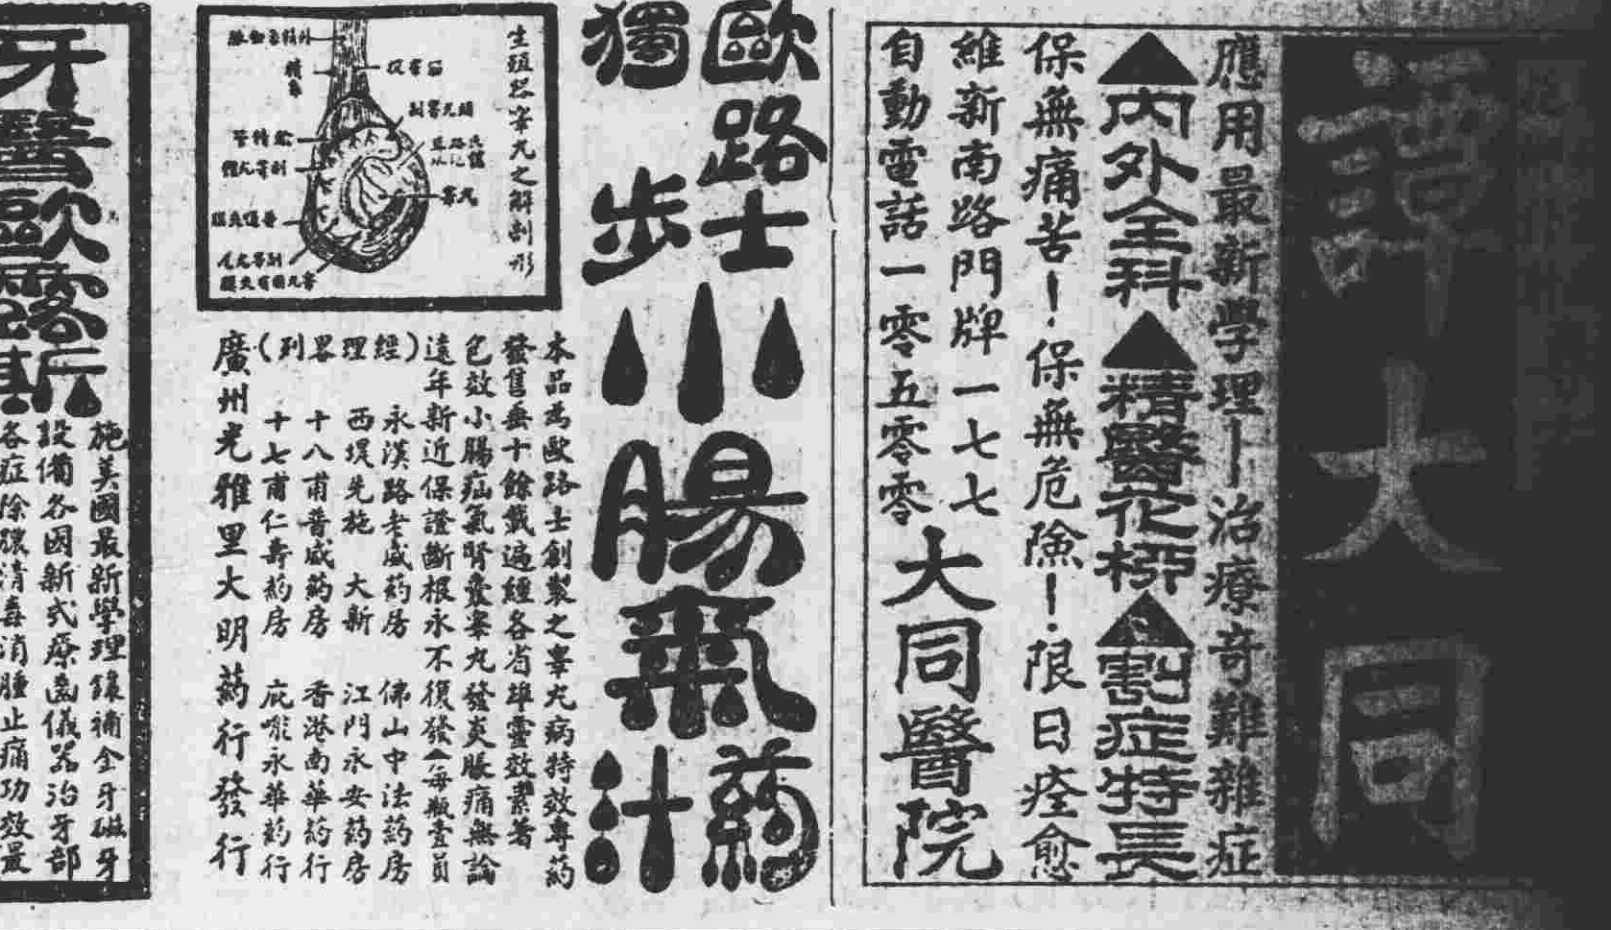 譚大同
應用最新學理—治療奇難雜症
▲內外全科▲精醫花柳▲割症特長
保無痛苦！保無危險！限日痊愈
維新南路門牌一七七
自動電話一零五零零
大同醫院
歐路士
獨步
小腸氣
藥汁
生殖器睪丸之解剖形
本品為歐路士創製之睪丸病特效專藥
發售垂十餘載遍經各省埠靈效素著
包效小腸疝氣腎囊睪丸發炎脹痛無論
遠年新近保證斷根永不復發（每瓶壹員）
（經理畧列）
永漢路老威药房 佛山中法药房
西堤先施 大新 江門永安药房
十八甫普威药房 香港南華药行
十七甫仁壽药房 庇能永華药行
廣州光雅里大明藥行發行
牙醫歐露斯
施美國最新學理鑲補金牙磁牙
設備各國新式療齒儀器治牙部
各症除膿清毒消腫止痛功效最